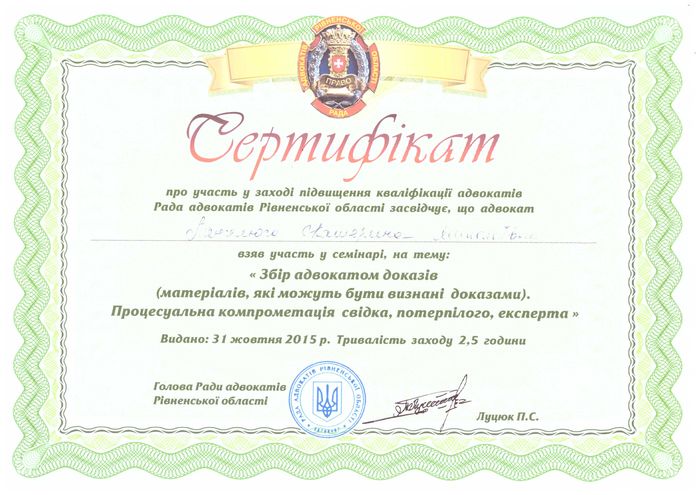 РАДА АДВОКАТІВ РІВНЕНСЬКОЇ ОБЛАСТІ
ПРАВО
Сертифікат
про участь у заході підвищення кваліфікації адвокатів
Рада адвокатів Рівненської області засвідчує, що адвокат
взяв участь у семінарі, на тему:
« Збір адвокатом доказів
(матеріалів, які можуть бути визнані доказами).
Процесуальна компрометація свідка, потерпілого, експерта »
Видано: 31 жовтня 2015 р. Тривалість заходу 2,5 години
Голова Ради адвокатів
Рівненської області
РАДА АДВОКАТІВ РІВНЕНСЬКОЇ ОБЛАСТІ
Луцюк П.С.